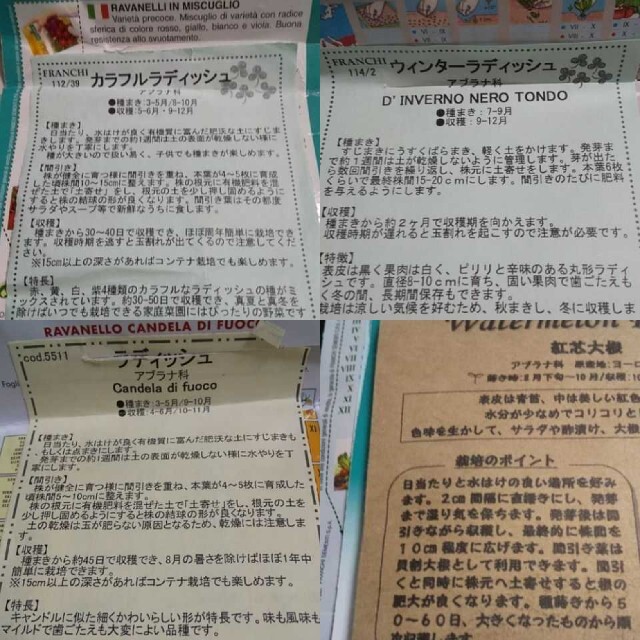 RAVANELLI IN MISCUGLIO
Varietà precoce. Miscuglio di varietà con radice
sferica di colore rosso, giallo, bianco e viola. Buona
resistenza allo svuotamento.
FRANCHI
112/39
カラフルラディッシュ
アブラナ科
●種まき:3-5月/8-10月
●収穫:5-6月・9-12月
【種まき】
日当たり、水はけが良く有機質に富んだ肥沃な土にすじま
きします。発芽までの約1週間は土の表面が乾燥しない様に
水やりを丁寧にします。
種が大きいので扱い易く、子供でも種まきが楽しめます。
【間引き】
株が健全に育つ様に間引きを重ね、本葉が4~5枚に育成し
た頃株間10~15cmに整えます。株の根元に有機肥料を混
ぜた土で「土寄せ」をし、根元の土を少し押し固めるように
すると株の結球の形が良くなります。間引き葉はその都度
サラダやスープ等で新鮮なうちに食します。
【収穫】
種まきから30~40日で収穫でき、ほぼ周年簡単に栽培でき
ます。収穫時期を逃すと玉割れが出てくるので注意してくだ
さい。
※15cm以上の深さがあればコンテナ栽培でも楽しめます。
【特長】
赤、黄、白、紫4種類のカラフルなラディッシュの種がミ
ックスされています。約30-50日で収穫でき、真夏と真冬を
除けばいつでも栽培できる家庭菜園にはぴったりの野菜です
FRANCHI
114/2
ウィンターラディッシュ
アブラナ科
D' INVERNO NERO TONDO
●種まき:7-9月
●収穫:9-12月
【種まき】
すじまきにうすくばらまき、軽く土をかけます。発芽ま
で約1週間は土が乾燥しないように管理します。芽が出た
ら数回間引きを繰り返し、株元に土寄せをします。本葉6枚
くらいで最終株間15-20cmにします。間引きのたびに肥料
を与えるようにします。
【収穫】
種まきから約2ヶ月で収穫期を向かえます。
収穫時期が遅れると玉割れを起こすので注意が必要です。
【特徴】
表皮は黒く果肉は白く、ピリリと辛味のある丸形ラディ
シュです。直径8-10cmに育ち、固い果肉で歯ごたえも
く冬の間、長期間保存もできます。
栽培は涼しい気候を好むため、秋まきし、冬に収穫しま
RAVANELLO CANDELA DI FUOCO
cod.5511
ラディッシュ
アブラナ科
Candela di fuoco
●種まき:3-5月/9-10月
●収穫:4-6月/10-11月
【種まき】
日当たり、水はけが良く有機質に富んだ肥沃な土にすじまきも
もしくは点まきにします。
発芽までの約1週間は土の表面が乾燥しない様に水やりを丁
寧にします。
【間引き】
株が健全に育つ様に間引きを重ね、本葉が4~5枚に育成し
た頃株間5~10cmに整えます。
株の根元に有機肥料を混ぜた土で「土寄せ」し、根元の土を
少し押し固めるようにすると株の結球の形が良くなります。
土の乾燥は玉が肥らない原因となるため、乾燥には注意しま
す。
【収穫】
種まきから約45日で収穫でき、8月の暑さを除けばほぼ1年中
簡単に栽培できます。
※15cm以上の深さがあればコンテナ栽培でも楽しめます。
【特長】
キャンドルに似た細くかわいらしい形が特長です。味も風味も
マイルドで歯ごたえも大変によい品種です。
Watermelon
紅芯大根
アブラナ科 原産地:ヨーロ
蒔き時:8月下旬~10月/収穫:1
表皮は青首、中は美しい紅色
水分が少なめでコリコリと
色味を生かして、サラダや酢漬け、大根
栽培のポイント
日当たりと水はけの良い場所を好み
ます。2cm間隔に直播きにし、発芽
まで湿り気を保ちます。発芽後は間
引きながら収穫し、最終的に株間を
10cm程度に広げます。間引き葉は
貝割大根として利用できます。間引
くと同時に株元へ土寄せすると根の
肥大が良くなります。種蒔きから5
0~60日、大きくなったものから順